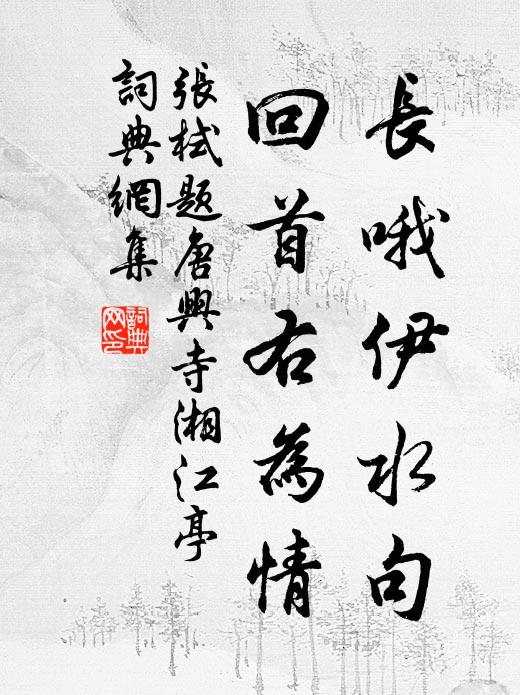 長哦伊水句
回首右為情
張栻題唐興寺湘江亭
詞典網集
詞典網印